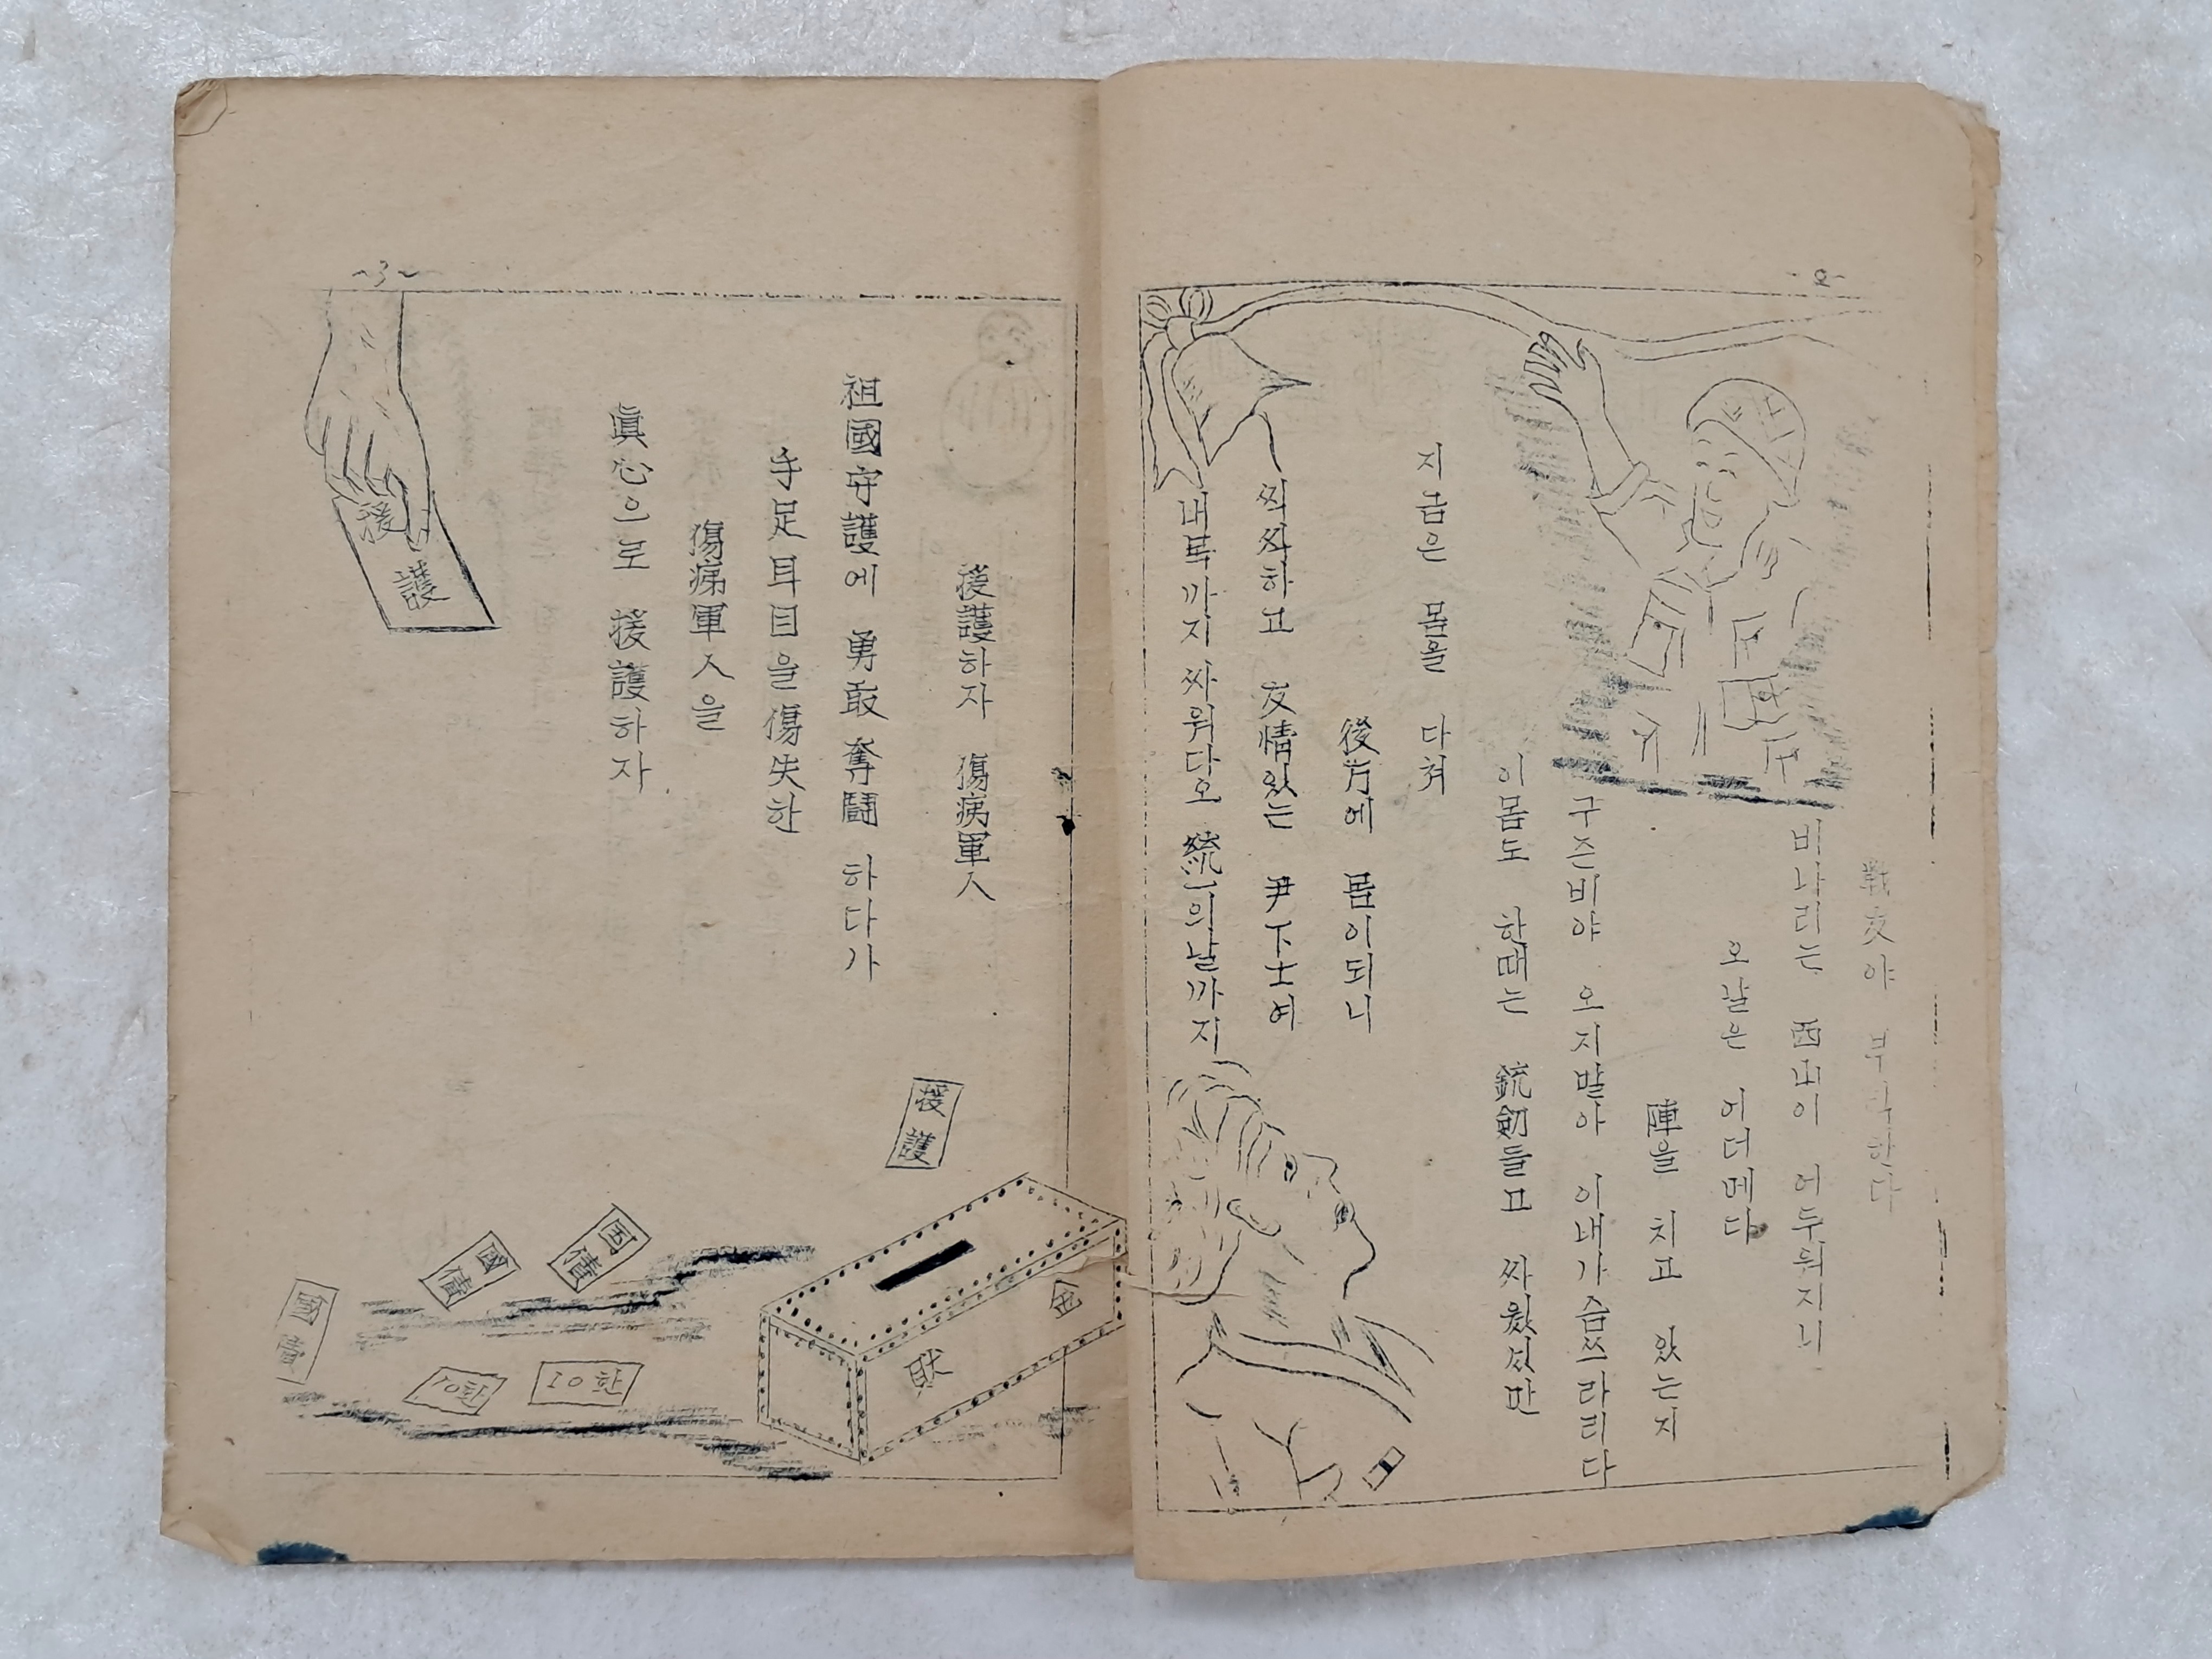 -2-
戰友야 부탁한다
비나리는 西山이 어두워지니
오날은 어더메다
陣을 치고 있는지
구즌비야 오지말아 이내가슴쓰라리다
이몸도 한때는 銃劒들고 싸웠섰만
지금은 몸을 다쳐
後方에 몸이되니
씩씩하고 友情있는 尹下士여
내복까지 싸워다오 統一의날까지
-3-
援護하자 傷病軍人
祖國守護에 勇敢奪鬪 하다가
手足耳目을 傷失한
傷痍軍人을
眞心으로 援護하자
援護
援護
國債
國債
國債
10환
10환
財
金